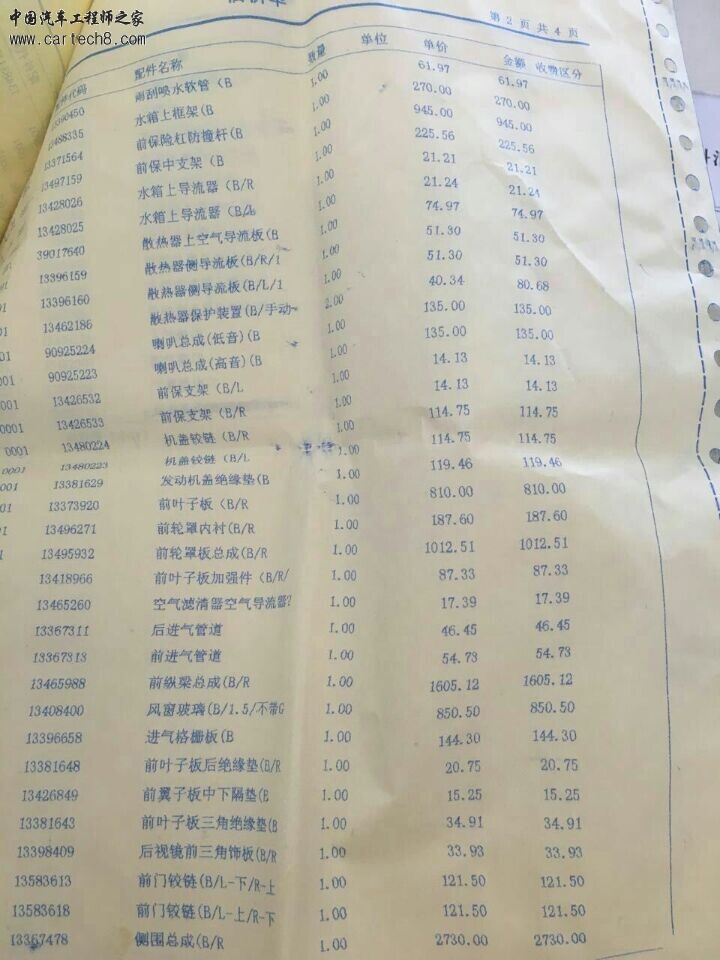 中国汽车工程师之家
www.cartech8.com
第 2 页 共 4 页
件代码 配件名称 数量 单位 单价 金额 收费区分
390450 雨刮喷水软管 (B 1.00 61.97 61.97
13488335 水箱上框架(B 1.00 270.00 270.00
13371564 前保险杠防撞杆(B 1.00 945.00 945.00
13497159 前保中支架 (B 1.00 225.56 225.56
13428026 水箱上导流器 (B/R 1.00 21.21 21.21
13428025 水箱上导流器 (B/ 1.00 21.24 21.24
39017640 散热器上空气导流板(B 1.00 74.97 74.97
13396159 散热器侧导流板(B/R/1 1.00 51.30 51.30
13396160 散热器侧导流板(B/L/1 1.00 51.30 51.30
13462186 散热器保护装置(B/手动- 2.00 40.34 80.68
90925224 喇叭总成(低音)(B 1.00 135.00 135.00
001 90925223 喇叭总成(高音)(B 1.00 135.00 135.00
0001 13426532 前保支架 (B/L 1.00 14.13 14.13
0001 13426533 前保支架 (B/R 1.00 14.13 14.13
0001 13480224 机盖铰链 (B/R 1.00 114.75 114.75
0001 13480223 机盖铰链 (B/L 1.00 114.75 114.75
001 13381629 发动机盖绝缘垫(B 1.00 119.46 119.46
001 13373920 前叶子板 (B/R 1.00 810.00 810.00
01 13496271 前轮罩内衬(B/R 1.00 187.60 187.60
13495932 前轮罩板总成(B/R 1.00 1012.51 1012.51
13418966 前叶子板加强件 (B/R/ 1.00 87.33 87.33
13465260 空气滤清器空气导流器 1.00 17.39 17.39
13367311 后进气管道 1.00 46.45 46.45
13367313 前进气管道 1.00 54.73 54.73
13465988 前纵梁总成(B/R 1.00 1605.12 1605.12
13408400 风窗玻璃(B/1.5/不带G 1.00 850.50 850.50
13396658 进气格栅板(B 1.00 144.30 144.30
13381648 前叶子板后绝缘垫(B/R 1.00 20.75 20.75
13426849 前翼子板中下隔垫(B 1.00 15.25 15.25
13381643 前叶子板三角绝缘垫(B 1.00 34.91 34.91
13398409 后视镜前三角饰板(B/R 1.00 33.93 33.93
13583613 前门铰链(B/L-下/R-上 1.00 121.50 121.50
13583618 前门铰链(B/L-上/R-下 1.00 121.50 121.50
13367478 侧围总成(B/R 1.00 2730.00 2730.00